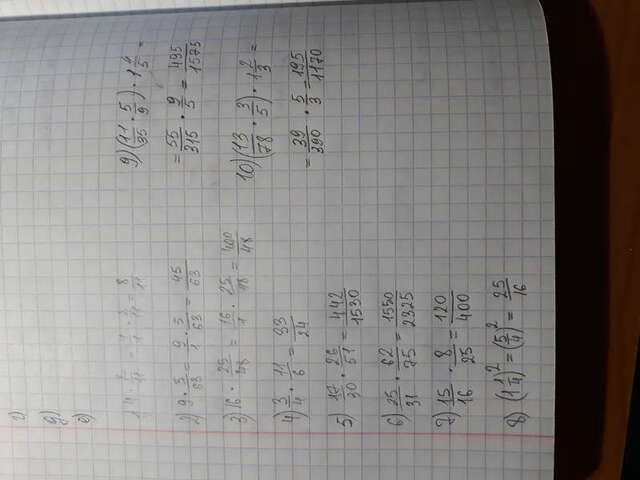 г)
д)
е)
1) 4 · 2/11 = 4/1 · 2/11 = 8/11
2) 9 · 5/63 = 9/1 · 5/63 = 45/63
3) 16 · 25/48 = 16/1 · 25/48 = 400/48
4) 3/4 · 11/6 = 33/24
5) 17/30 · 26/51 = 442/1530
6) 25/31 · 62/75 = 1550/2325
7) 15/16 · 8/25 = 120/400
8) (1 1/4)² = (5/4)² = 25/16
9) (11/35 · 5/9) · 1 4/5 =
= 55/315 · 9/5 = 495/1575
10) (13/78 · 3/5) · 1 2/3 =
= 39/390 · 5/3 = 195/1170